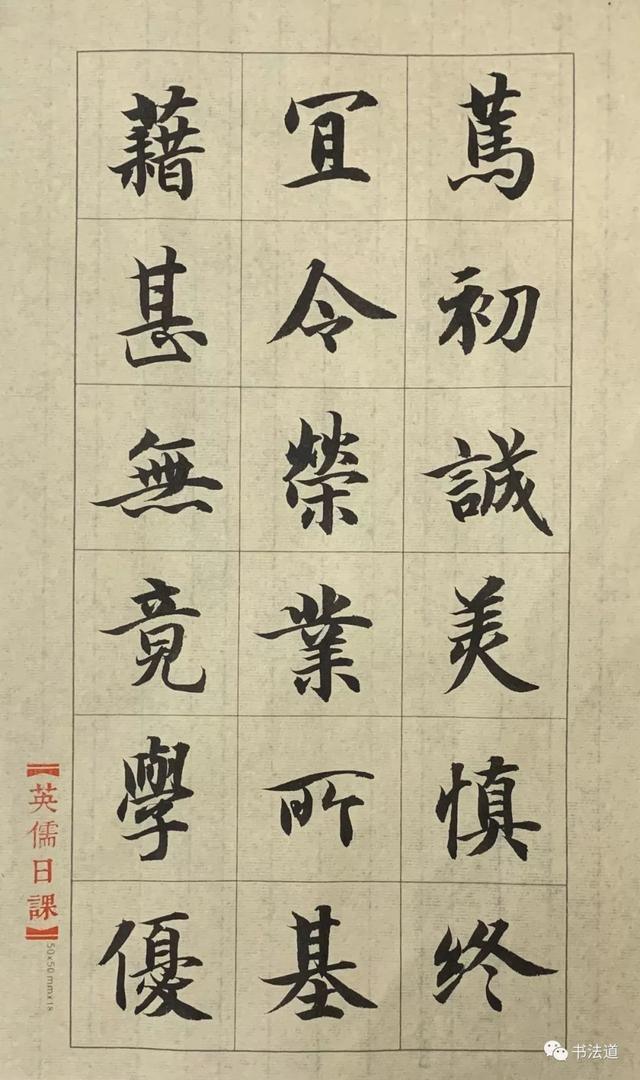 篤初誠美慎终
宜令榮業所基
藉甚無竟學優
【英儒日課】
50x50mmx18
书法道